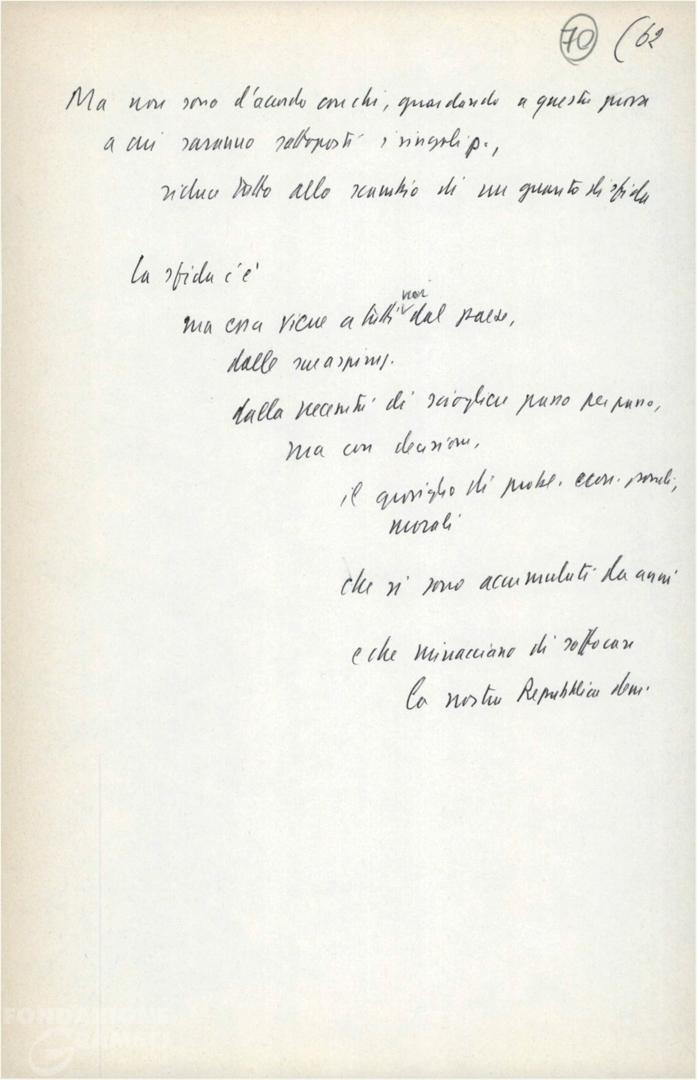 70 (62
Ma non sono d'accordo con chi, guardando a questa prova
a cui saranno sottoposti i singoli p.,
riduce tutto allo scambio di un guanto di sfida
La sfida c'è
ma essa viene a tutti noi dal paese,
dalle sue aspiraz.
dalla necessità di sciogliere passo per passo,
ma con decisione,
il groviglio di probl. econ. sociali,
morali
che si sono accumulati da anni
e che minacciano di soffocare
la nostra Repubblica dem.
FONDAZIONE
GRAMSCI